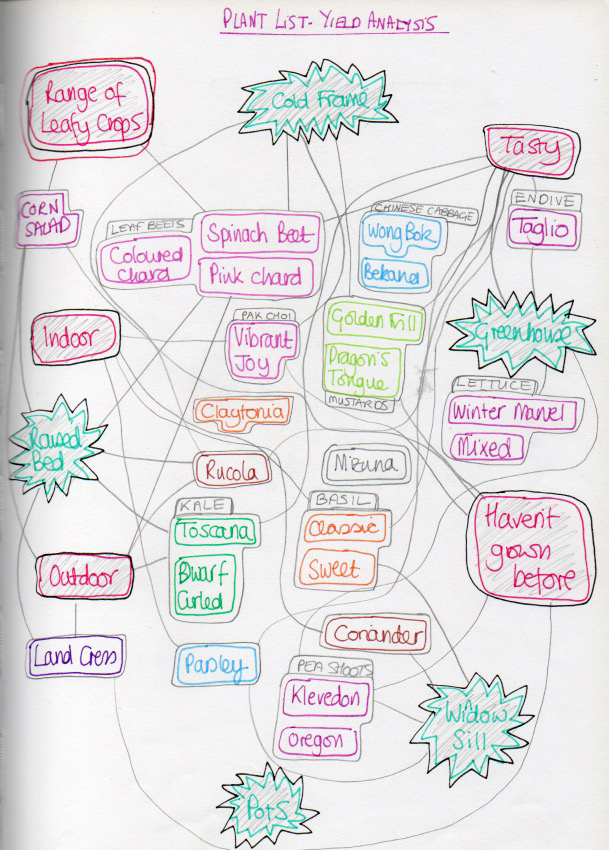 PLANT LIST - YIELD ANALYSIS
Range of
Leafy Crops
Cold Frame
Tasty
CORN
SALAD
LEAF BEETS
Coloured
Chard
Spinach Beet
Pink chard
CHINESE CABBAGE
Wong Bok
Bekana
ENDIVE
Taglio
Indoor
PAK CHOI
Vibrant
Joy
Golden Frill
Dragon's
Tongue
MUSTARDS
Greenhouse
LETTUCE
Winter Marvel
Mixed
Claytonia
Raised
Bed
Rucola
Mizuna
KALE
Toscana
Dwarf
Curled
BASIL
Classic
Sweet
Haven't
grown
before
Outdoor
Land Cress
Parsley
Coriander
PEA SHOOTS
Klevedon
Oregon
Widow
Sill
Pots